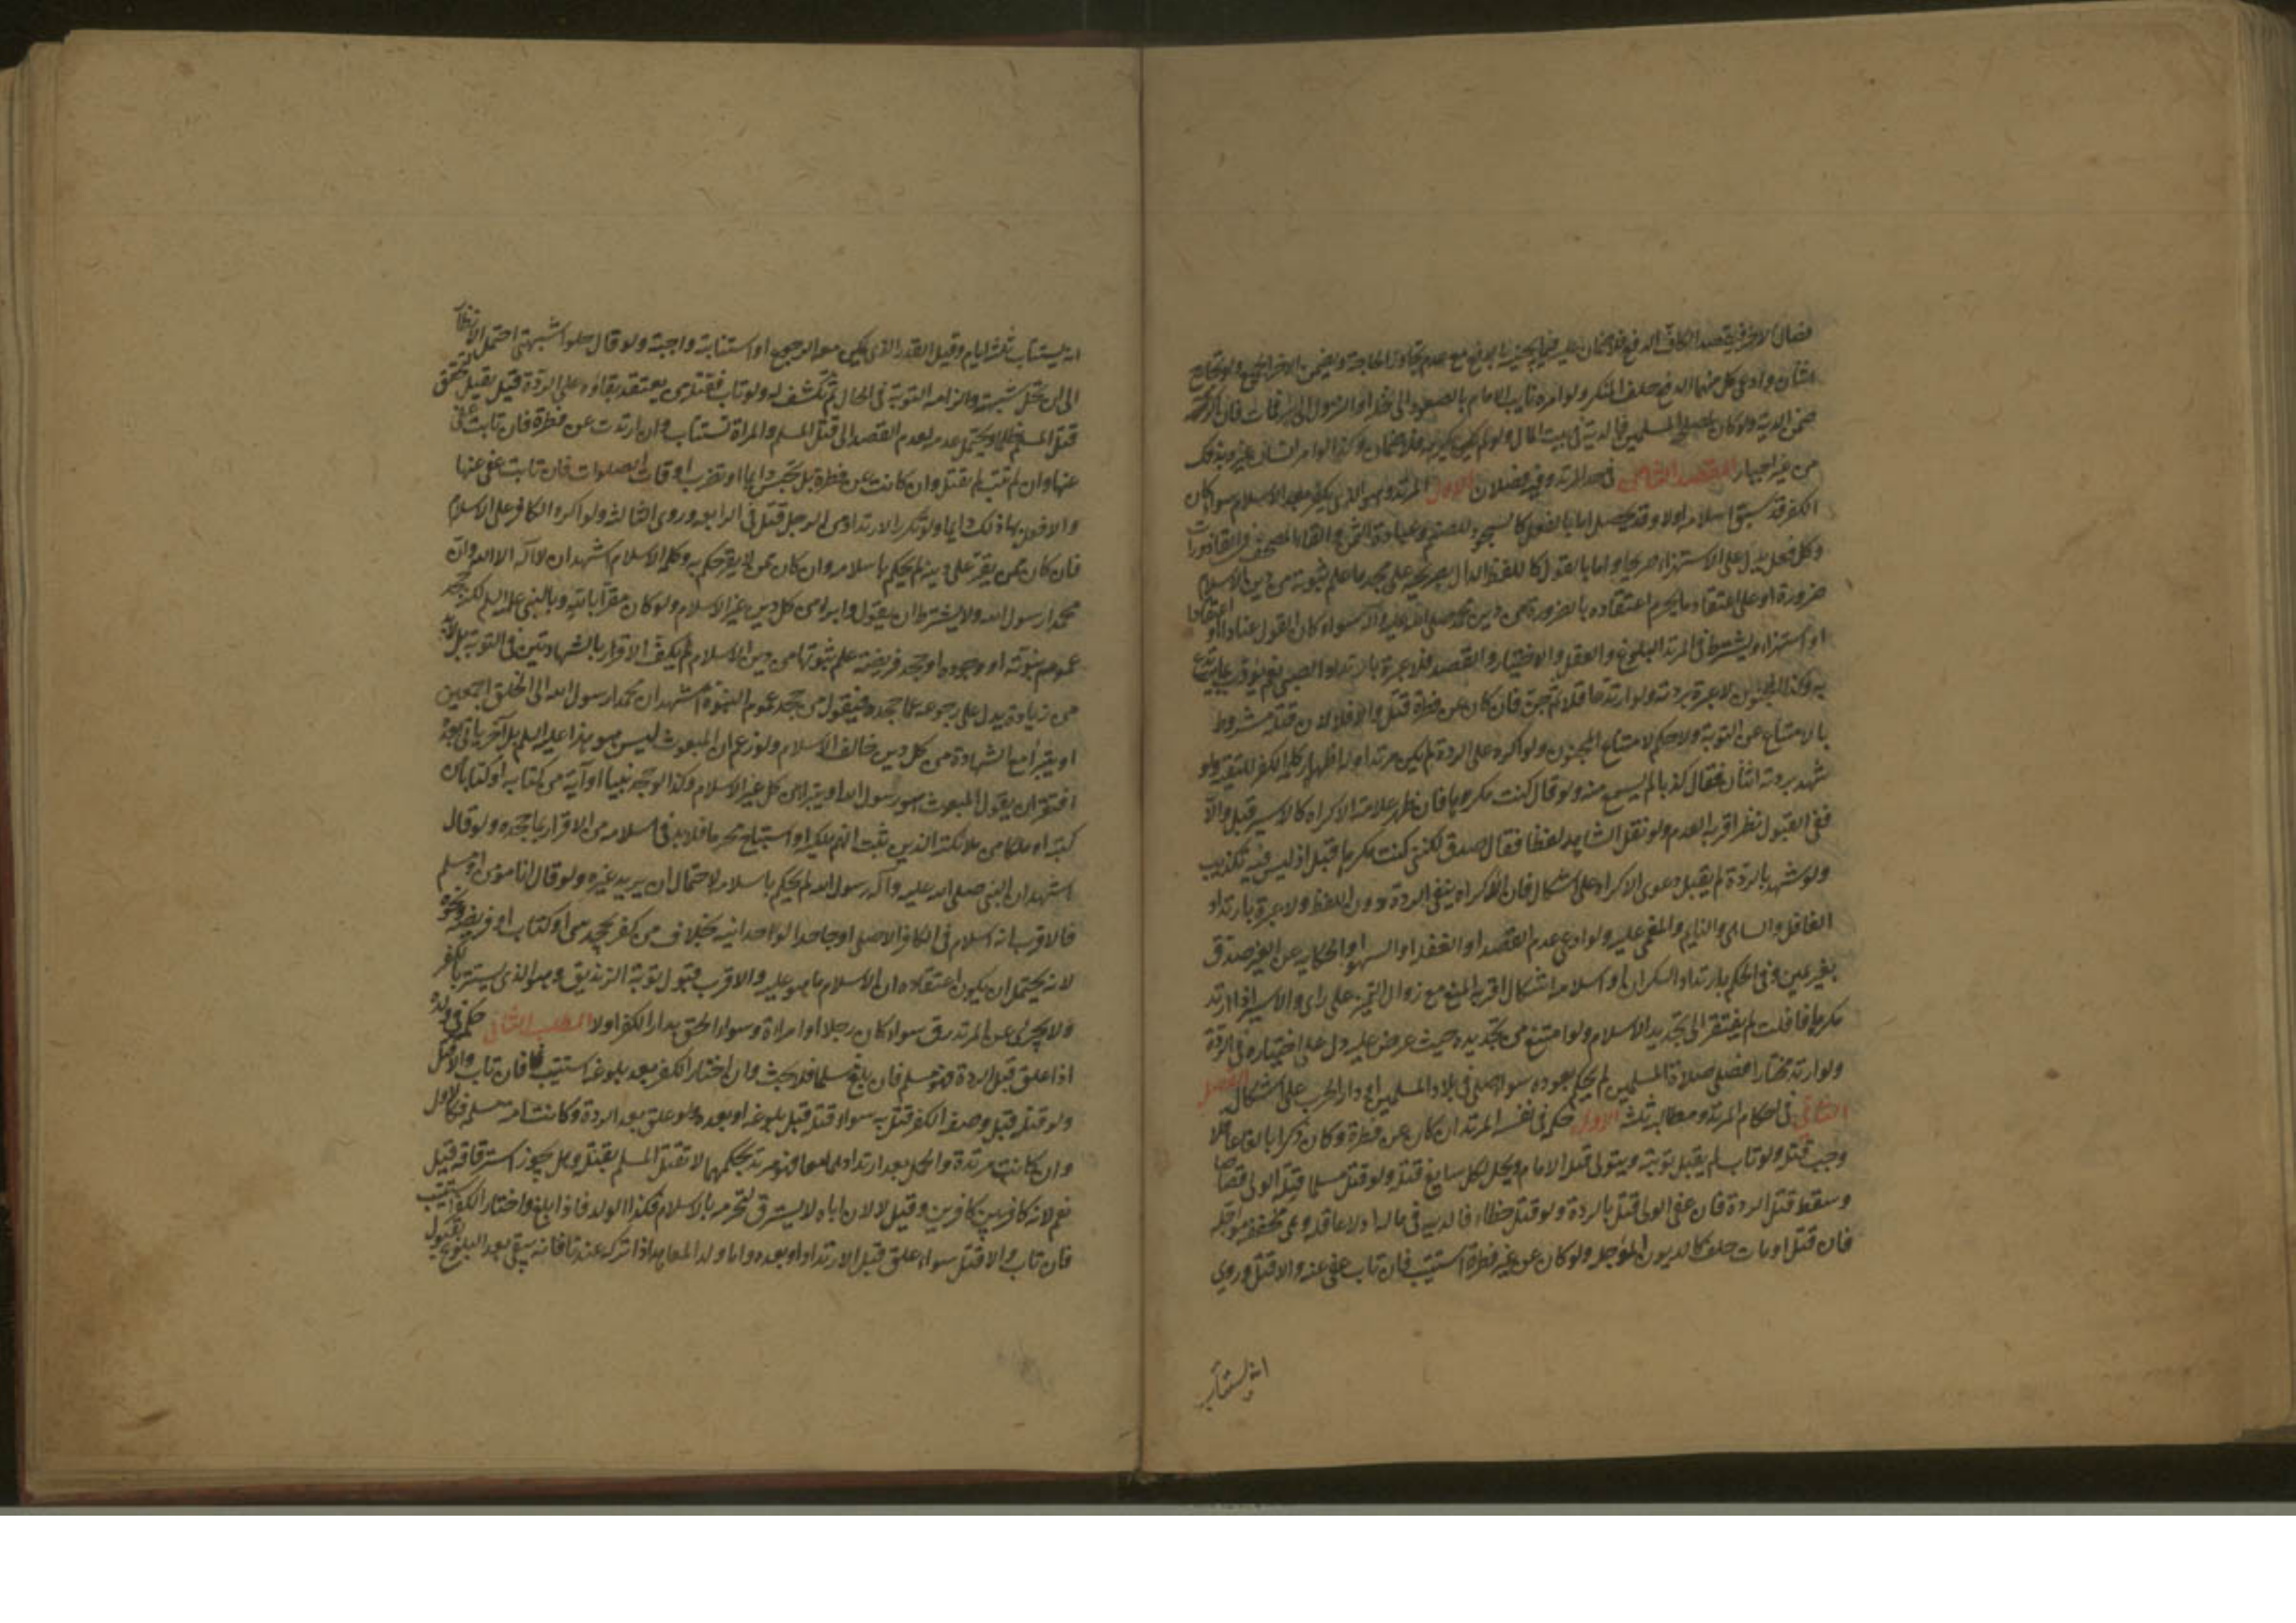 فصال الاخر فقصد الكاف الدفع فلا ضمان عليه فيما يجنيه بالدفع مع عدم تجاوز الحاجة ويضمن الاخر الجميع ولو تجارح
اثنان وادعى كل منهما الدفع حلف المنكر ولو امره نايب الامام بالصعود الى نخلة او النزول الى بئر فمات فان اكرهه
ضمن الدية ولو كان لمصلحة المسلمين فالدية في بيت المال ولو لم يكن اكره فلا ضمان وكذا لو امر انسان غيره بذلك
من غير اجبار المقصد الخامس في حد المرتد وفيه فصلان الاول المرتد وهو الذي يكفر بعد الاسلام سواء كان
الكفر قد سبق اسلامه اولا وقد يحصل اما بالفعل كالسجود للصنم وعبادة الشمس والقاء المصحف في القاذورات
وكل فعل يدل على الاستهزاء صريحا واما بالقول كاللفظ الدال بصريحه على جحد ما علم ثبوته من دين الاسلام
ضرورة او على اعتقاد ما يحرم اعتقاده بالضرورة من دين محمد صلى الله عليه وآله سواء كان القول عنادا او اعتقادا
او استهزاء ويشترط في المرتد البلوغ والعقل والاختيار والقصد فلا عبرة بارتداد الصبي نعم يؤدب بما يرتدع
به وكذا المجنون لا عبرة بردته ولو ارتد عاقلا ثم جن فان كان عن فطرة قتل والا فلا لان قتله مشروط
بالامتناع عن التوبة ولا حكم لامتناع المجنون ولو اكره على الردة لم يكن مرتدا وله اظهار كلمة الكفر للتقية ولو
شهد بردته اثنان فقال كذبا لم يسمع منه ولو قال كنت مكرها فان ظهر علامة الاكراه كالاسير قبل والا
ففي القبول نظر اقربه العدم ولو نقل الشاهد لفظا فقال صدق لكنني كنت مكرها قبل اذ ليس فيه تكذيب
ولو شهد بالردة لم يقبل دعوى الاكراه على اشكال فان الاكراه ينفي الردة دون اللفظ ولا عبرة بارتداد
الغافل والساهي والنايم والمغمى عليه ولو ادعى عدم القصد او الغفلة او السهو او الحكاية عن الغير صدق
بغير يمين وفي الحكم بارتداد السكران او اسلامه اشكال اقربه المنع مع زوال التميز على راى والاسير اذا ارتد
مكرها فافلت لم يفتقر الى تجديد الاسلام ولو امتنع من تجديده حيث عرض عليه دل على اختياره في الردة
ولو ارتد مختارا فصلى صلاة المسلمين لم يحكم بعوده سواء صلى في بلاد المسلمين او دار الحرب على اشكال الفصل
الثاني في احكام المرتد ومطالبه ثلثة الاول حكمه في نفسه المرتد ان كان عن فطرة وكان ذكرا بالغا عاقلا
وجب قتله ولو تاب لم يقبل توبته ويتولى قتله الامام ويحل لكل سامع قتله ولو قتل مسلما قتله الولي قصاصا
وسقط قتل الردة فان عفى الولي قتل بالردة ولو قتل خطاء فالدية في ماله اذ لا عاقلة له وهي مخففة مؤجلة
فان قتل او مات حلت كالديون المؤجلة ولو كان عن غير فطرة استتيب فان تاب عفي عنه والا قتل وروي
انه يستتاب
انه يستتاب ثلثة ايام وقيل القدر الذي يمكن معه الرجوع او استتابته واجبة ولو قال حلوا شبهتي احتمل الانظار
الى ان تحل شبهته والزامه التوبة في الحال ثم تكشف له ولو تاب فقتله من يعتقد بقاؤه على الردة قيل يقتل لتحقق
قتل المسلم ظلما ويحتمل عدمه لعدم القصد الى قتل المسلم والمراة تستتاب وان ارتدت عن فطرة فان تابت عفي
عنها وان لم تتب لم تقتل وان كانت عن فطرة بل تحبس دايما وتضرب اوقات الصلوات فان تابت عفي عنها
والا فعل بها ذلك دايما ولو تكرر الارتداد من الرجل قتل في الرابعة وروي الثالثة ولو اكره الكافر على الاسلام
فان كان ممن يقر على دينه لم يحكم باسلامه وان كان ممن لا يقر حكم به وكلمة الاسلام اشهد ان لا اله الا الله وان
محمدا رسول الله ولا يشترط ان يقول وابرا من كل دين غير الاسلام ولو كان مقرا بالله وبالنبي عليه السلم لكنه جحد
عموم نبوته او وجوده او جحد فريضة علم ثبوتها من دين الاسلام لم يكف الاقرار بالشهادتين في التوبة بل لابد
من زيادة يدل على رجوعه عما جحده فيقول من جحد عموم النبوة اشهد ان محمدا رسول الله الى الخلق اجمعين
او يتبرا مع الشهادة من كل دين خالف الاسلام ولو زعم ان المبعوث ليس هو هذا عليه السلم بل آخر ياتي بعد
افتقر ان يقول المبعوث هو رسول الله او يتبرا من كل غير الاسلام وكذا لو جحد نبيا او آية من كتابه او كتابا من
كتبه او ملكا من ملائكته الذين ثبت انهم ملائكة او استباح محرما فلابد في اسلامه من الاقرار بما جحده ولو قال
اشهد ان النبي صلى الله عليه وآله رسول الله لم يحكم باسلامه لاحتمال ان يريد غيره ولو قال انا مؤمن او مسلم
فالاقرب انه اسلام في الكافر الاصلي او جاحد الواحدانية بخلاف من كفر بجحد نبي او كتاب او فريضة ونحوه
لانه يحتمل ان يكون اعتقاده ان الاسلام ما هو عليه والاقرب قبول توبة الزنديق وهو الذي يستتر بالكفر
ولا يجري على المرتد رق سواء كان رجلا او امراة وسواء لحق بدار الكفر اولا المطلب الثاني حكمه في ولده
اذا علق قبل الردة فهو مسلم فان بلغ مسلما فلا بحث وان اختار الكفر بعد بلوغه استتيب فان تاب والا قتل
ولو قتله قبل وصفه الكفر قتل به سواء قتله قبل بلوغه او بعده ولو علق بعد الردة وكانت امه مسلمة فكالاول
وان كانت مرتدة والحمل بعد ارتدادهما فهو مرتد بحكمهما لا يقتل المسلم بقتله وهل يجوز استرقاقه قيل
نعم لانه كافر بين كافرين وقيل لا لان اباه لا يسترق لتحرمه بالاسلام فكذا الولد فاذا بلغ واختار الكفر استتيب
فان تاب والا قتل سواء علق قبل الارتداد او بعده واما ولد المعاهد اذا تركه عندنا فانه يبقى بعد البلوغ بقبول